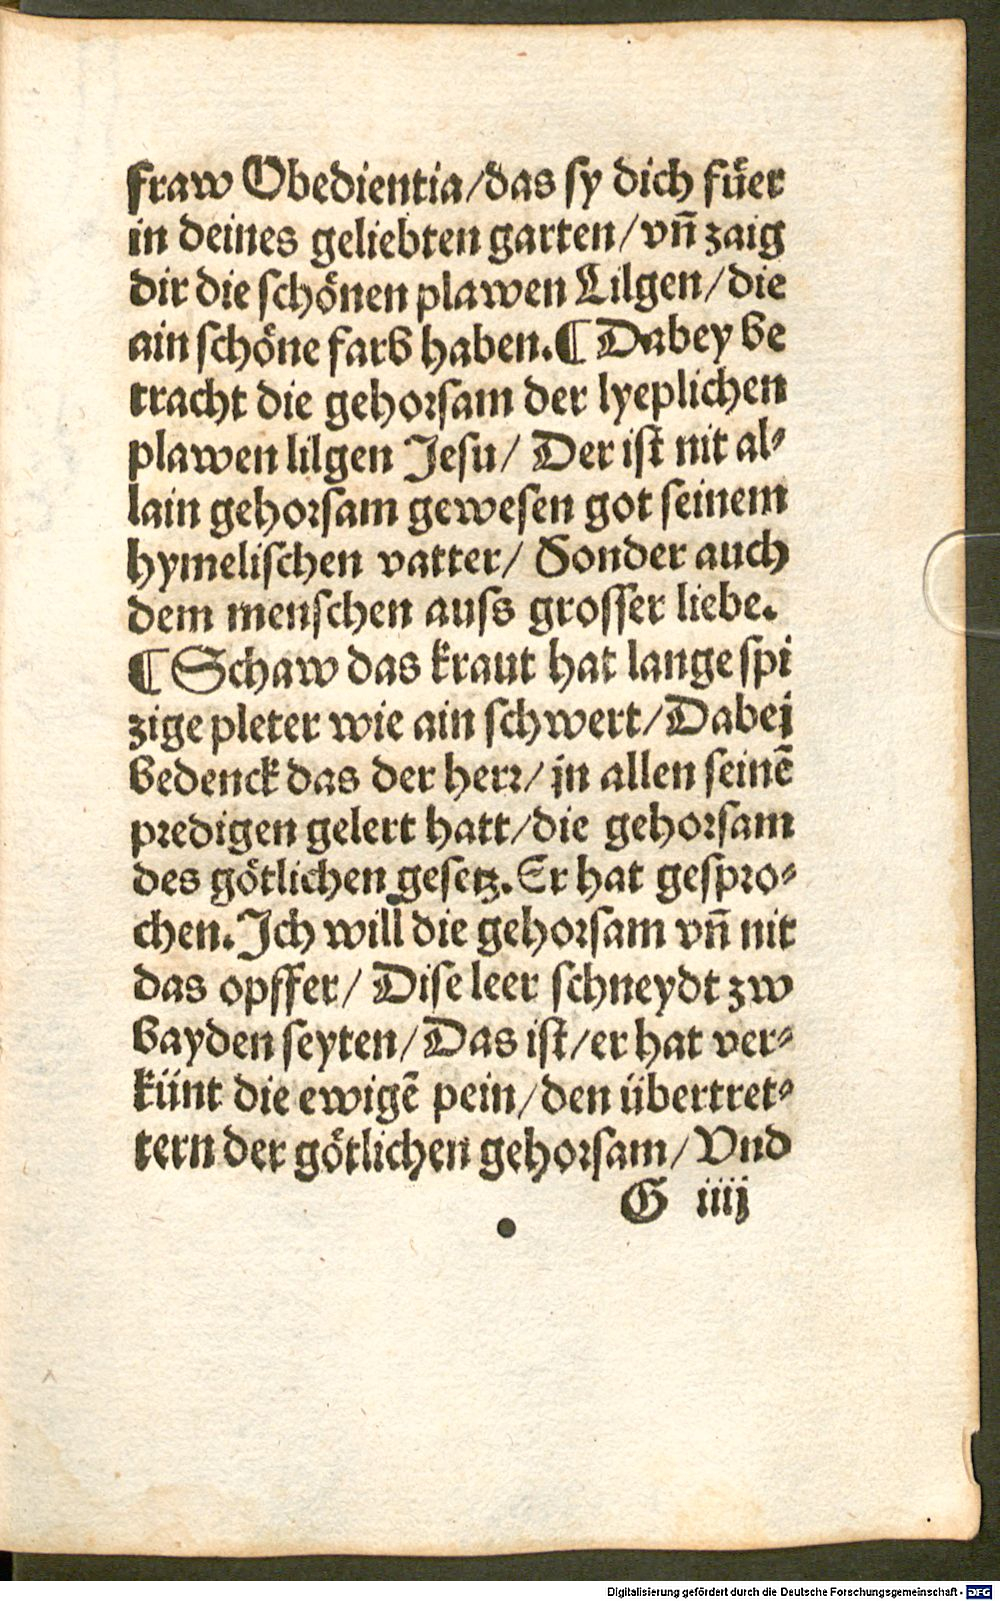 fraw Obedientia/das sy dich fuͤer
in deines geliebten garten/vn̄ zaig
dir die schoͤnen plawen Lilgen/die
ain schoͤne farb haben.¶ Dabey be
tracht die gehorsam der lyeplichen
plawen lilgen Jesu/ Der ist nit al⸗
lain gehorsam gewesen got seinem
hymelischen vatter/ Sonder auch
dem menschen auss grosser liebe.
¶ Schaw das kraut hat lange spi
zige pleter wie ain schwert/Dabei
bedenck das der herr/ jn allen seinē
predigen gelert hatt/die gehorsam
des goͤtlichen gesetz.Er hat gespro⸗
chen.Ich will die gehorsam vn̄ nit
das opffer/ Dise leer schneydt zw
bayden seyten/Das ist/er hat ver⸗
künt die ewigē pein/den übertret⸗
tern der goͤtlichen gehorsam/ Vnd
G iiij
Digitalisierung gefördert durch die Deutsche Forschungsgemeinschaft - DFG